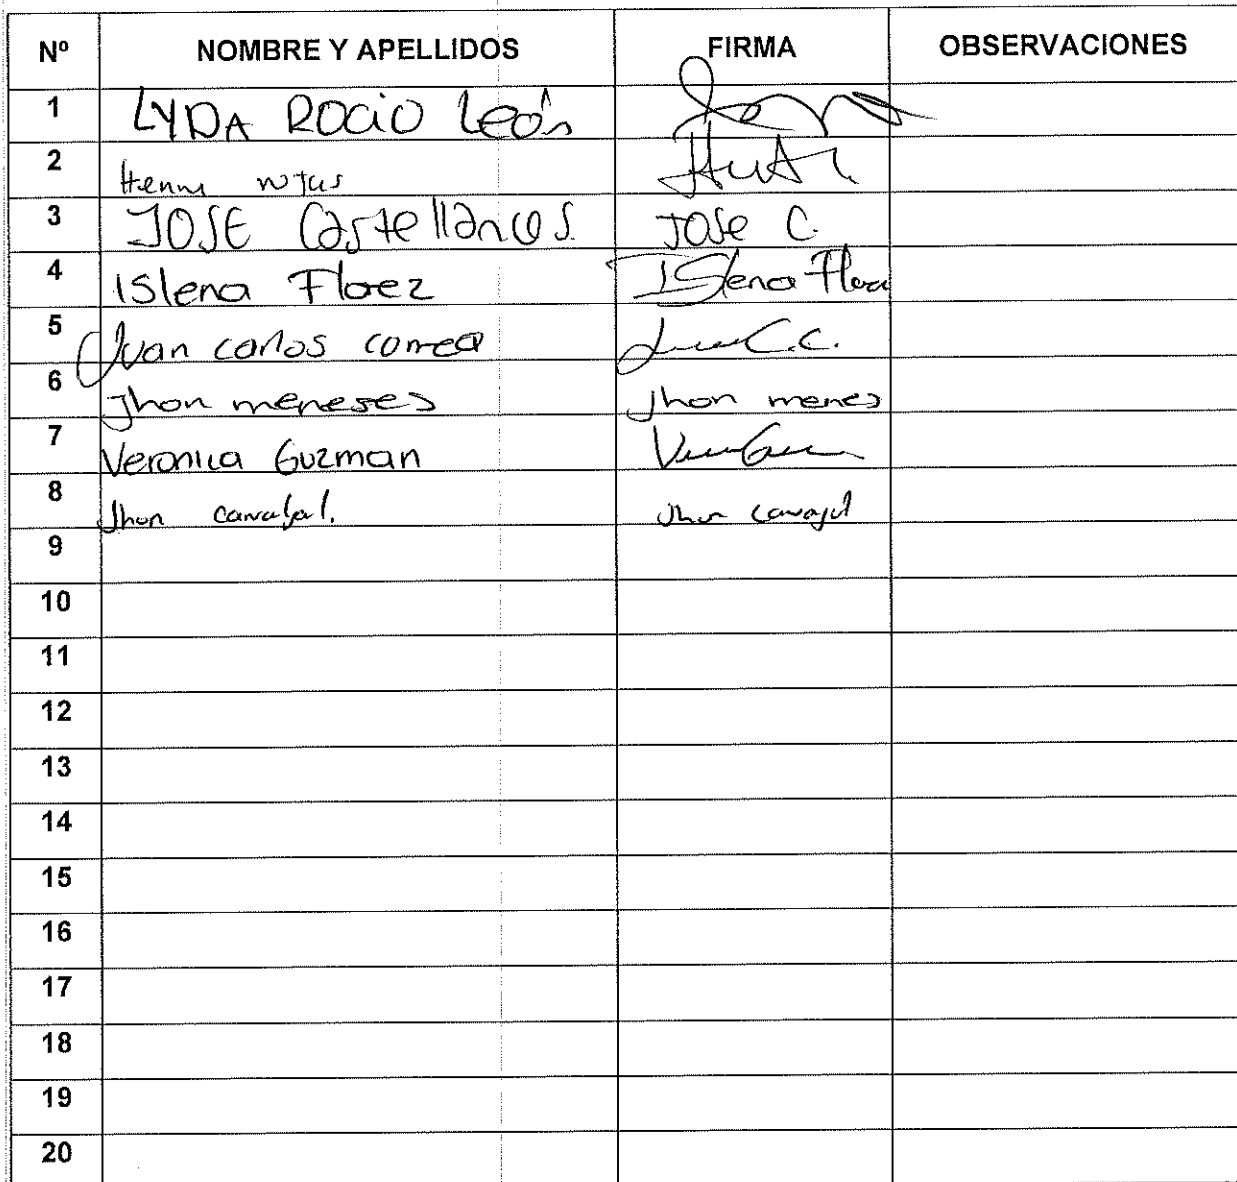 Nº NOMBRE Y APELLIDOS FIRMA OBSERVACIONES
1 LYDA ROCIO León
2
3 JOSE Castellanos. JOSE C.
4 Islena Floez Islena Floez
5 Juan carlos correa Juan C.C.
6 Jhon meneses Jhon menes
7 Veronica Guzman
8 Jhon carvajal. Jhon carvajal
9
10
11
12
13
14
15
16
17
18
19
20